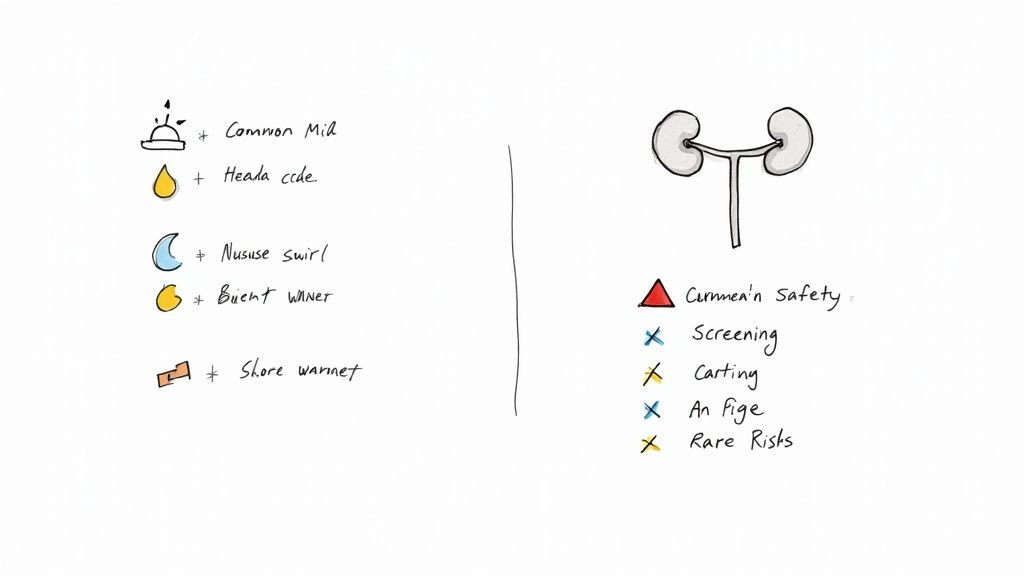 + Common Mid
+ Heada ccde.
+ Nususe swirl
+ Bicent WANET
+ Shore warmet
Cummea'n Safety
Screening
Carting
An Fige
Rare Risks